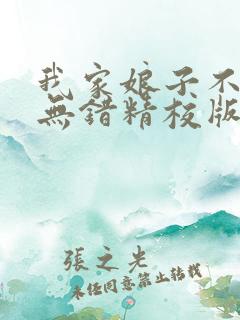 我家娘子不
無錯精校版
張之光
未經同意禁止轉載